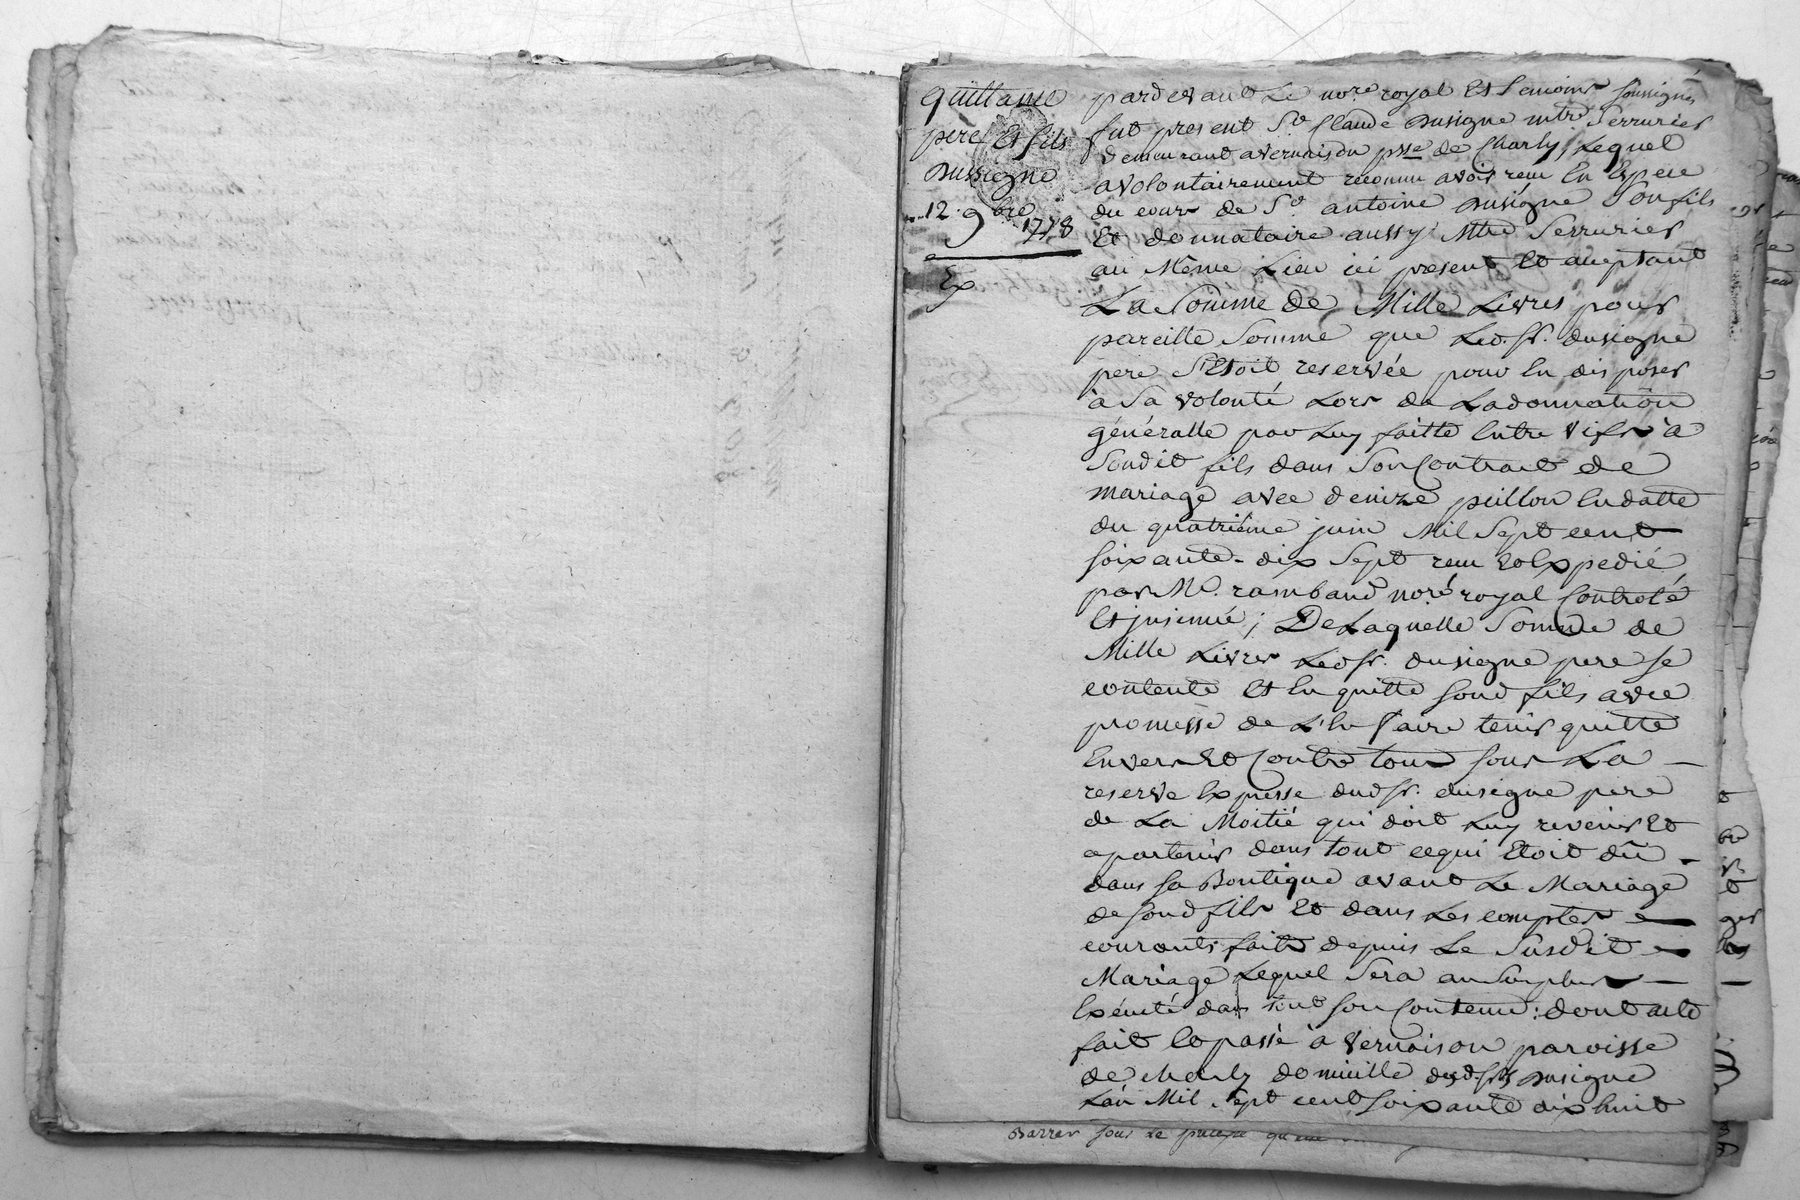 quittance
pere Et fils
Dussigne
12. 9bre 1778
Ex
pardevant Le nore. royal Et temoins soussignés
fut present Sr. Claude dusigne mtre Serrurier
demeurant a vernaison psse de Charly, Lequel
a volontairement reconnu avoir recu En Espece
du cours de Sr. antoine dusigne Son fils
Et donnataire aussy Mtre Serrurier
au Même Lieu ici present Et acceptant
La Somme De Mille Livres pour
pareille Somme que Led. Sr. dusigne
pere S'Etoit reservée pour En disposer
à Sa volonté Lors de La donnation
généralle par Luy faitte Entre vifs à
Sondit fils dans Son Contract de
mariage avec denize pillon En datte
du quatrième juin Mil Sept cent
soixante-dix Sept recu Et Expedié
par Me. rambaud noré royal Controlé
Et jnsinué; De Laquelle Somme de
Mille Livres Led Sr. dusigne pere se
contente Et En quitte sond fils avec
promesse de L'En faire tenir quitte
Envers Et Contre tous sous La
reserve Expresse dud Sr. dusigne pere
de La Moitié qui doit Luy revenir Et
apartenir dans tout ce qui Etoit dû
dans sa Boutique avant Le Mariage
de sond fils Et dans Les comptes
courants faits depuis Le Susdit
Mariage Lequel Sera au Surplus
Exécuté dans tout son Contenu: dont acte
fait Et passé à vernaison paroisse
de charly domicille desd Srs dusigne
L'an Mil Sept cent soixante dix huit
Barrer sous Le